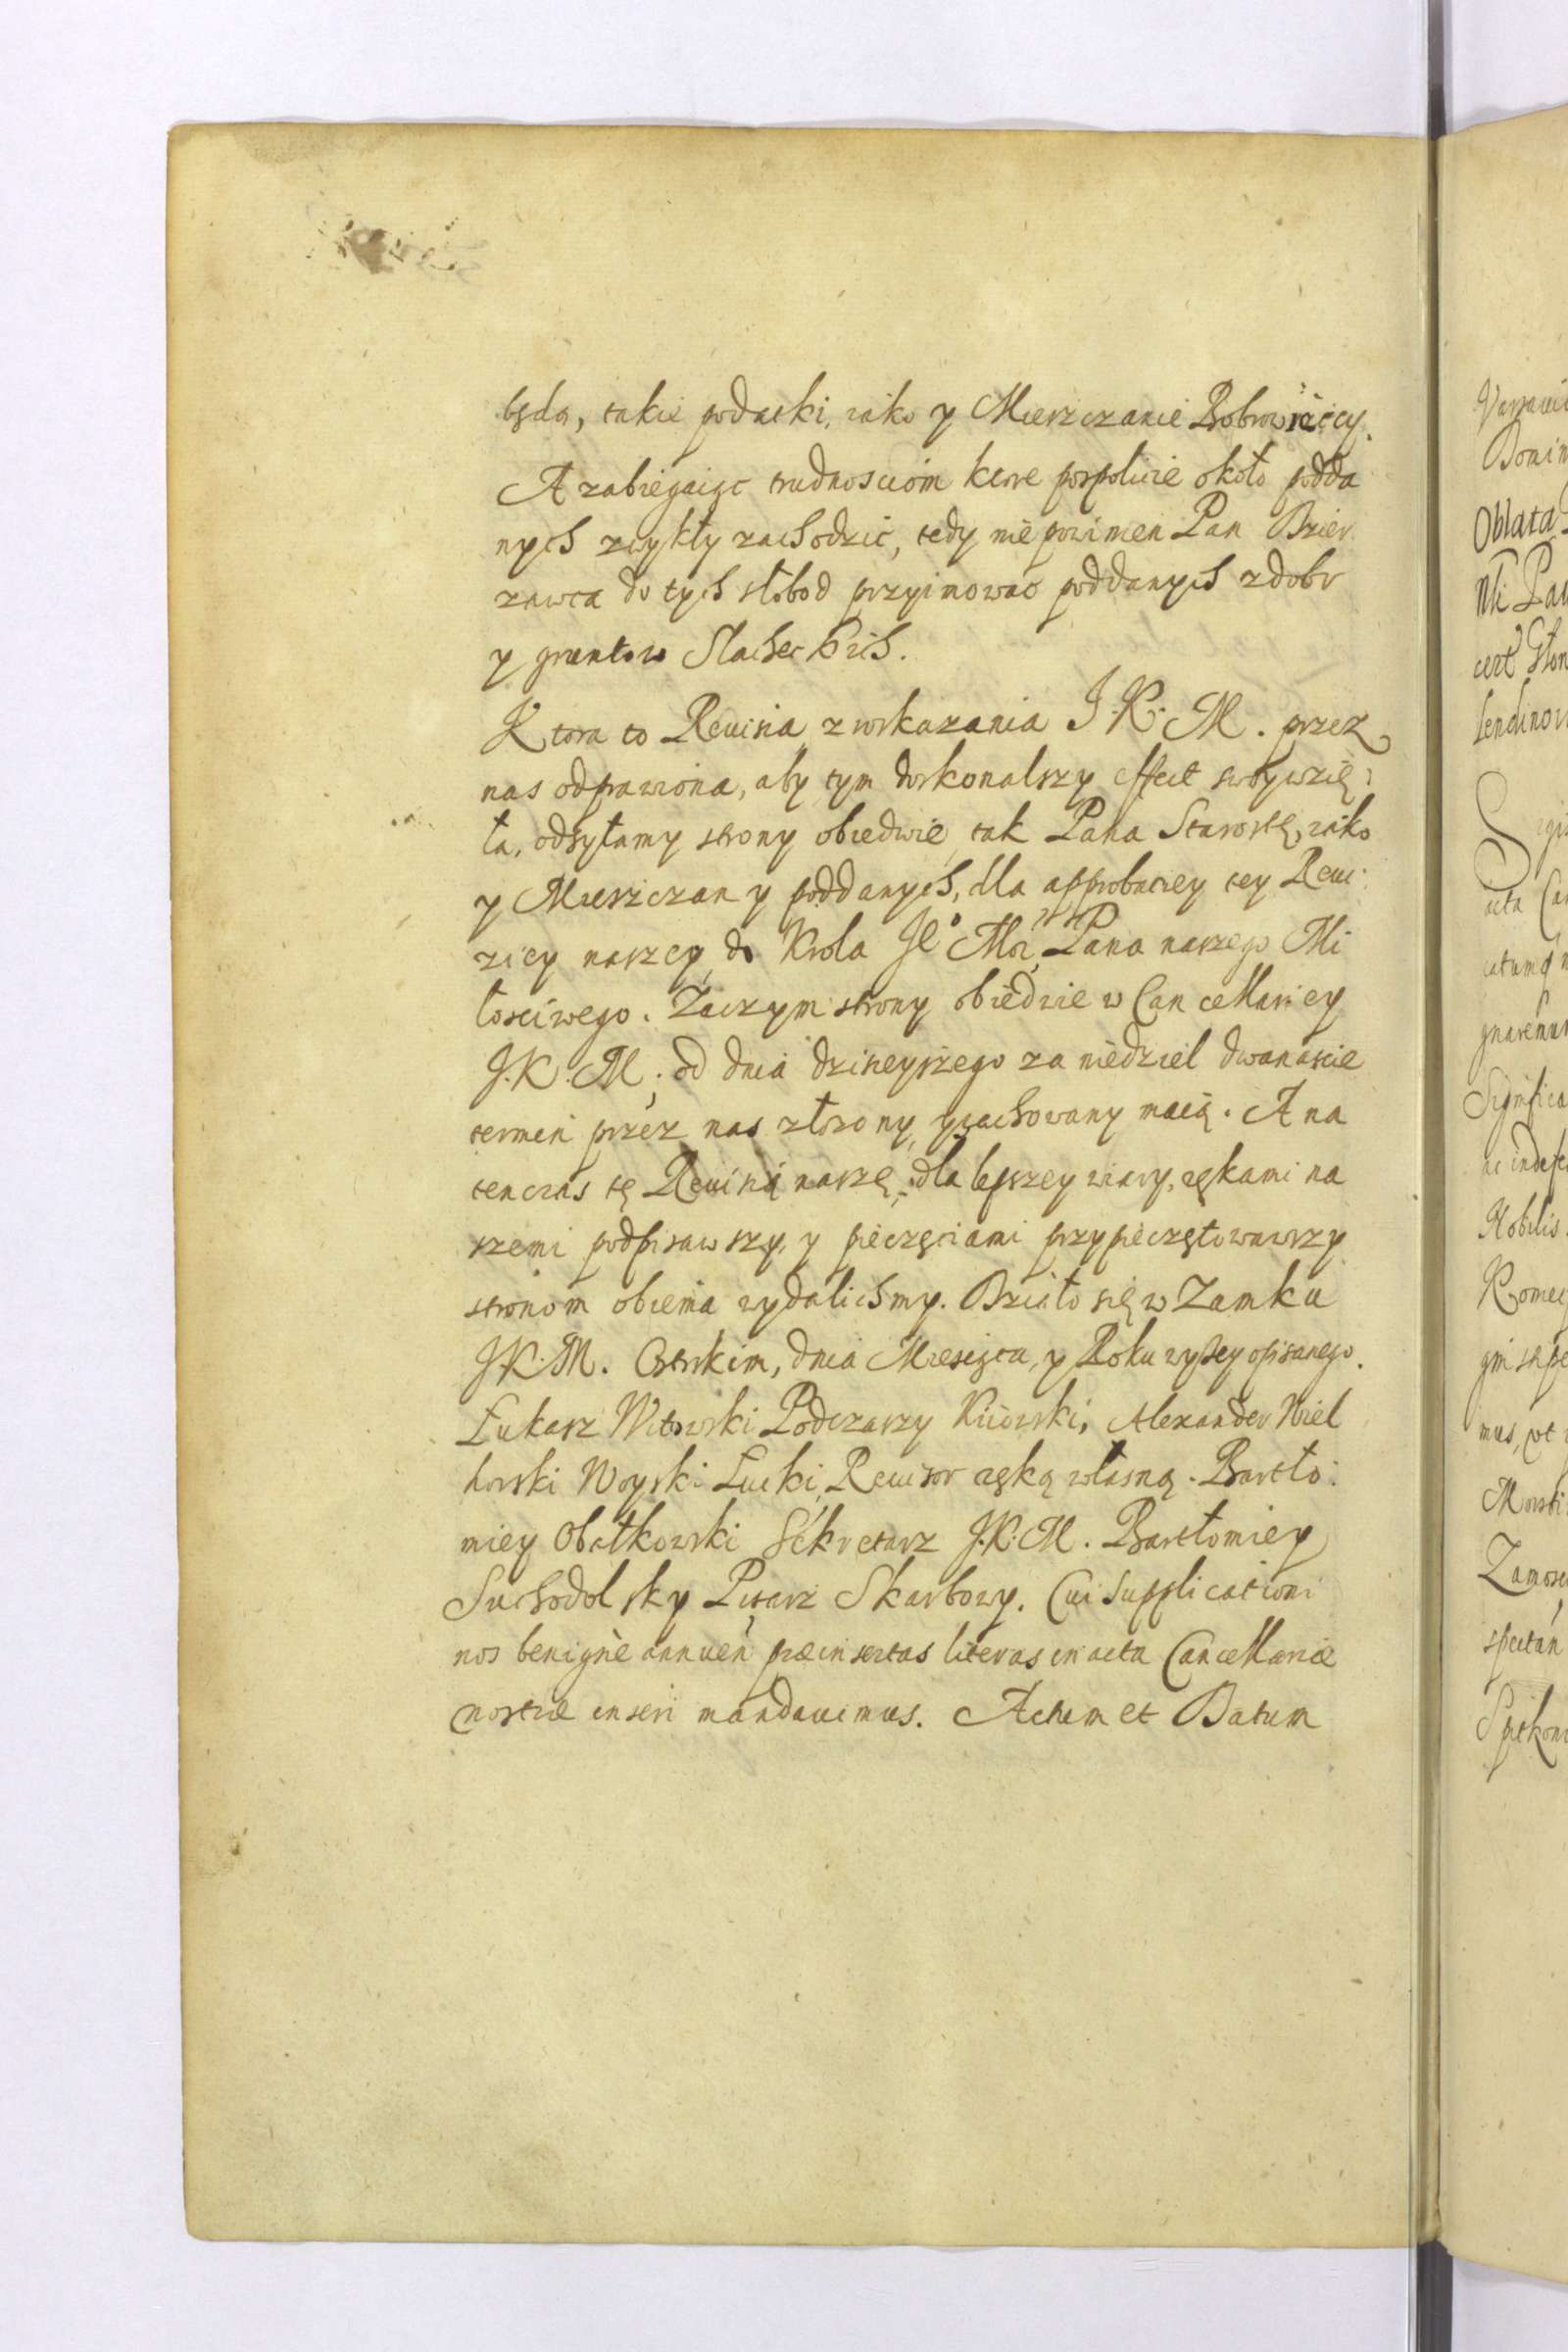 będą, takie podatki, iako y Mieszczanie Bobrowniccy.
A zabiegaiąc trudnosciom ktore pospolicie około podda
nych zwykły zachodzić, tedy nie powinien Pan Dzier
zawca do tych słobod przyimować poddanych z dobr
y gruntow Slacheckich.
Ktora to Reuisia z wskazania J. K. M. przez
nas odprawiona, aby tym doskonalszy effect swoy wzię:
ła, odsyłamy strony obiedwie, tak Pana Starostę, iako
y Mieszczan y poddanych, dla approbaciey tey Reui:
ziey naszey, do Krola Je° Mci, Pana naszego Mi
łosciwego. Zaczym strony obiedzie w Cancellariey
J. K. M. od dnia dzisieyszego za niedziel dwanascie
termin przez nas złozony, zachowany maią. A na
tenczas tę Reuisią naszę, dla lepszey wiary, rękami na
szemi podpisawszy, y pieczęciami przypieczętowawszy
stronom obiema wydalichmy. Działo się w Zamku
J. K. M. Ostrskim, dnia Miesięca, y Roku wyszey opisanego.
Łukasz Witowski Podczaszy Kiiowski, Alexander Wiel
horski Woyski Łucki, Reuisor ręką własną. Bartło:
miey Obałkowski Sekretarz J. K. M. Bartłomiey
Suchodolsky Pisarz Skarbowy. Cui supplicationi
nos benignè annuen̄ præinsertas literas in acta Cancellariæ
nostræ inseri mandauimus. Actum et Datum
Oblata